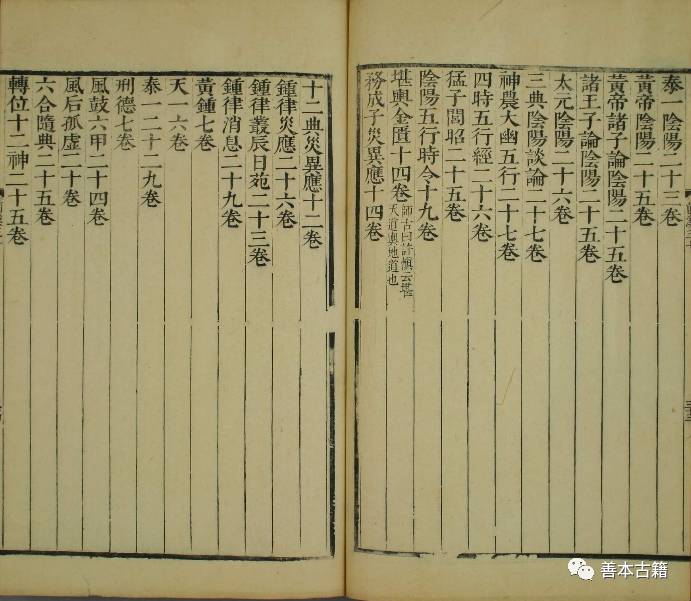 泰一陰陽二十三卷
黃帝陰陽二十五卷
黃帝諸子論陰陽二十五卷
諸王子論陰陽二十五卷
太元陰陽二十六卷
三典陰陽談論二十七卷
神農大幽五行二十七卷
四時五行經二十六卷
猛子閭昭二十五卷
陰陽五行時令十九卷
堪輿金匱十四卷 師古曰許慎云堪天道輿地道也
務成子災異應十四卷
十二典災異應十二卷
鍾律災應二十六卷
鍾律叢辰日苑二十三卷
鍾律消息二十九卷
黃鍾七卷
天一六卷
泰一二十九卷
刑德七卷
風鼓六甲二十四卷
風后孤虛二十卷
六合隨典二十五卷
轉位十二神二十五卷
善本古籍